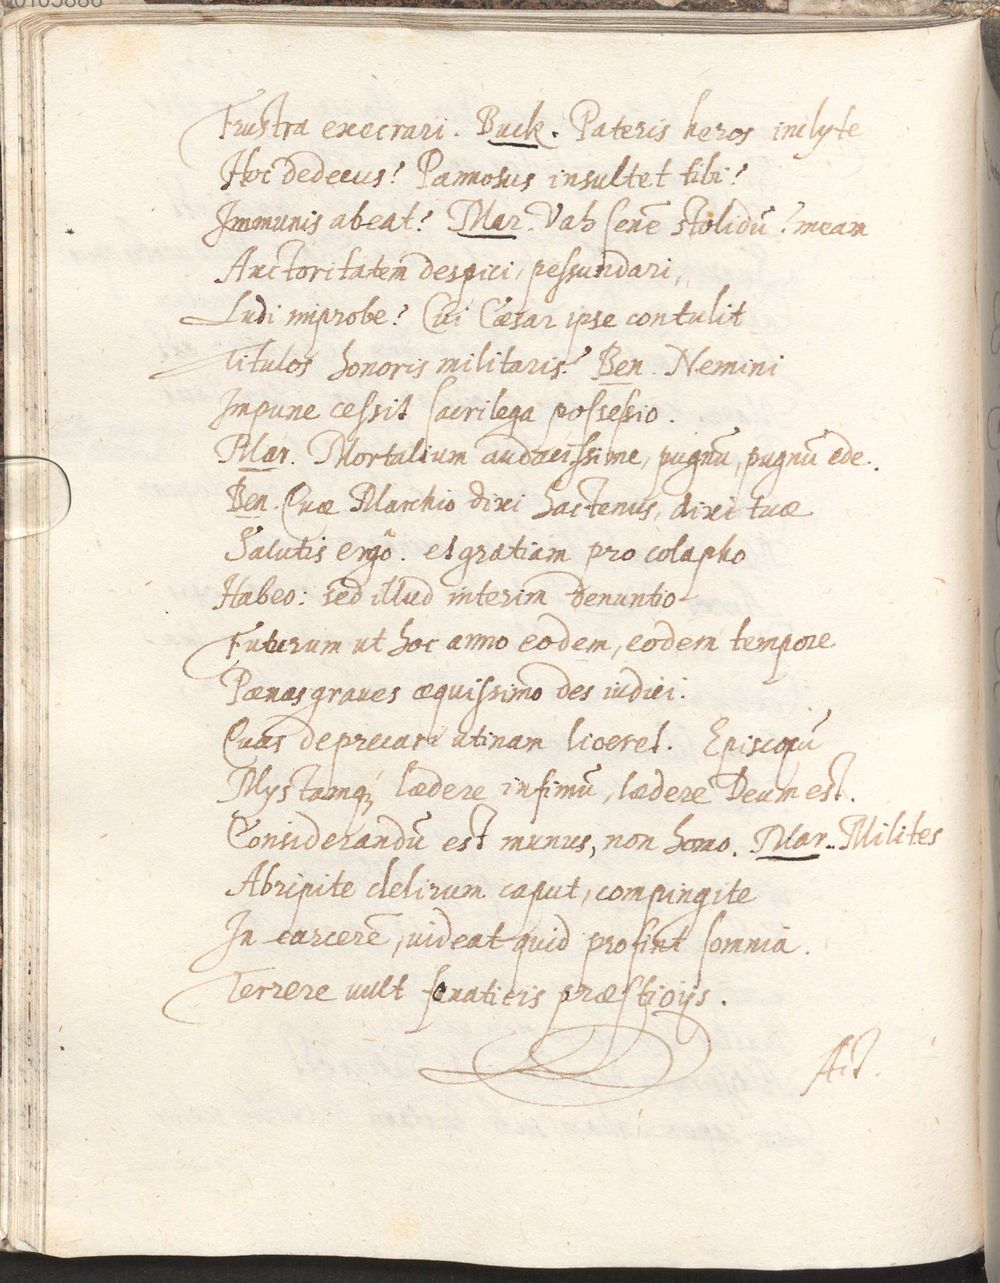 Frustra execrari. Buck. Pateris heros inclyte
Hoc dedecus? Pannosus insultet tibi?
Immunis abeat? Mar. Vah senē stolidū! meam
Auctoritatem despici, pessundari,
Ludi improbe? Cui Cæsar ipse contulit
Titulos honoris militaris? Ben. Nemini
Impune cessit sacrilega possessio.
Mar. Mortalium audacissime, pugnū, pugnū ede.
Ben. Quæ Marchio dixi hactenus, dixi tuæ
Salutis ergo. et gratiam pro colapho
Habeo: sed illud interim denuntio
Futurum ut hoc anno eodem, eodem tempore
Pœnas graves æquissimo des iudici.
Quas deprecari utinam liceret. Episcopū
Mystamq; lædere infimū, lædere Deum est.
Considerandū est munus, non homo. Mar. Milites
Abripite delirum caput, compingite
In carcerē, uideat quid prosint somnia.
Terrere uult fanaticis præstigijs.